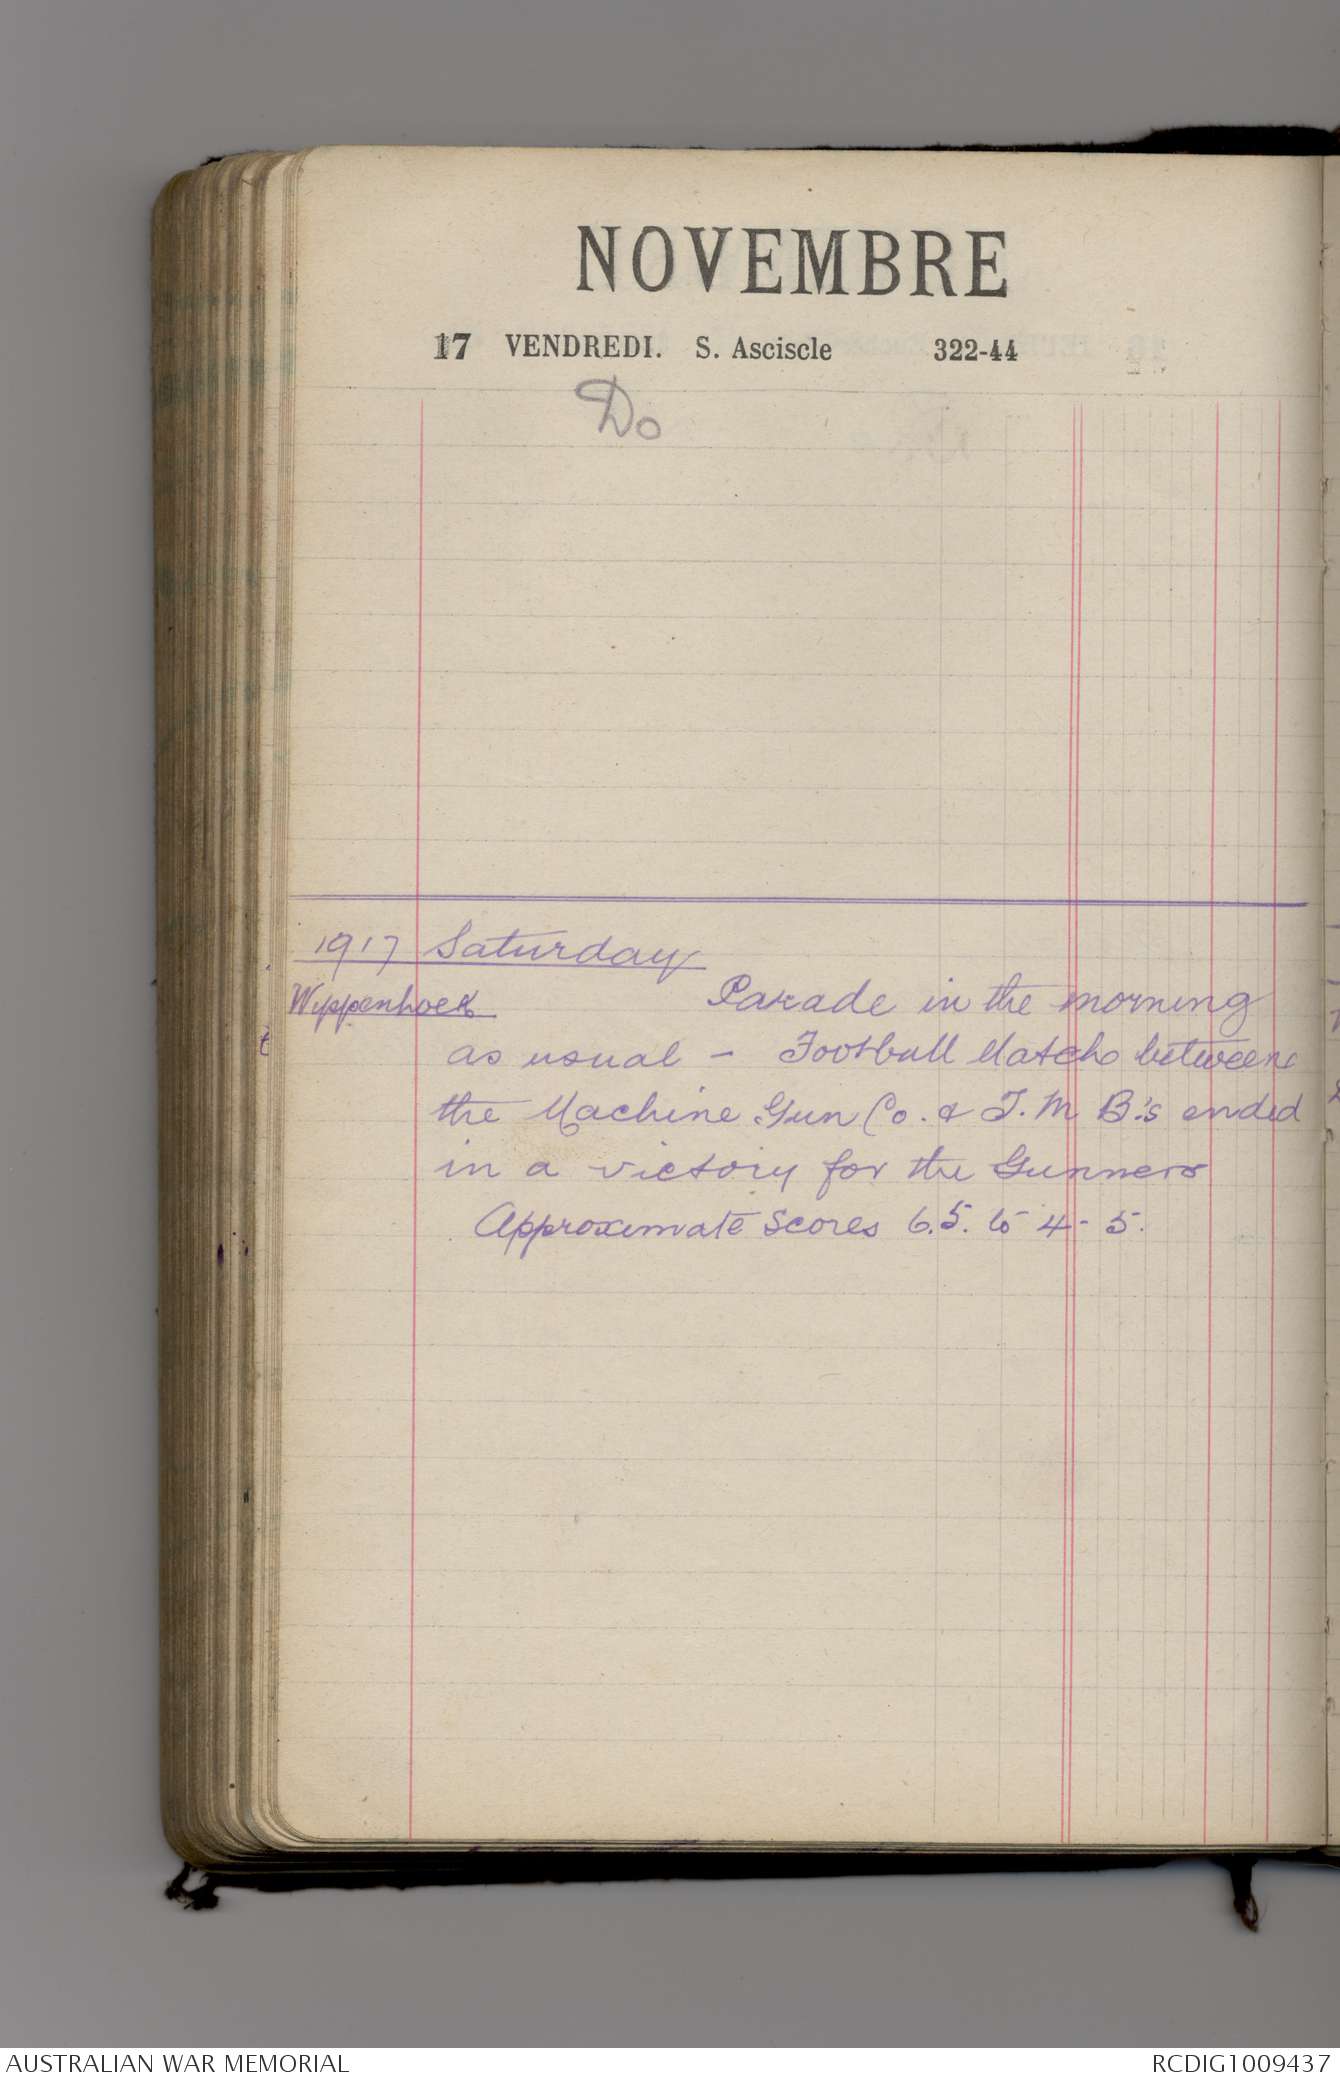 NOVEMBRE
17 VENDREDI. S. Asciscle 322-44
Do
1917 Saturday
Wippenhoek Parade in the morning
as usual - Football Match between
the Machine Gun Co. & T. M B.'s ended
in a victory for the Gunners
Approximate Scores 6.5. to 4-5.
AUSTRALIAN WAR MEMORIAL RCDIG1009437